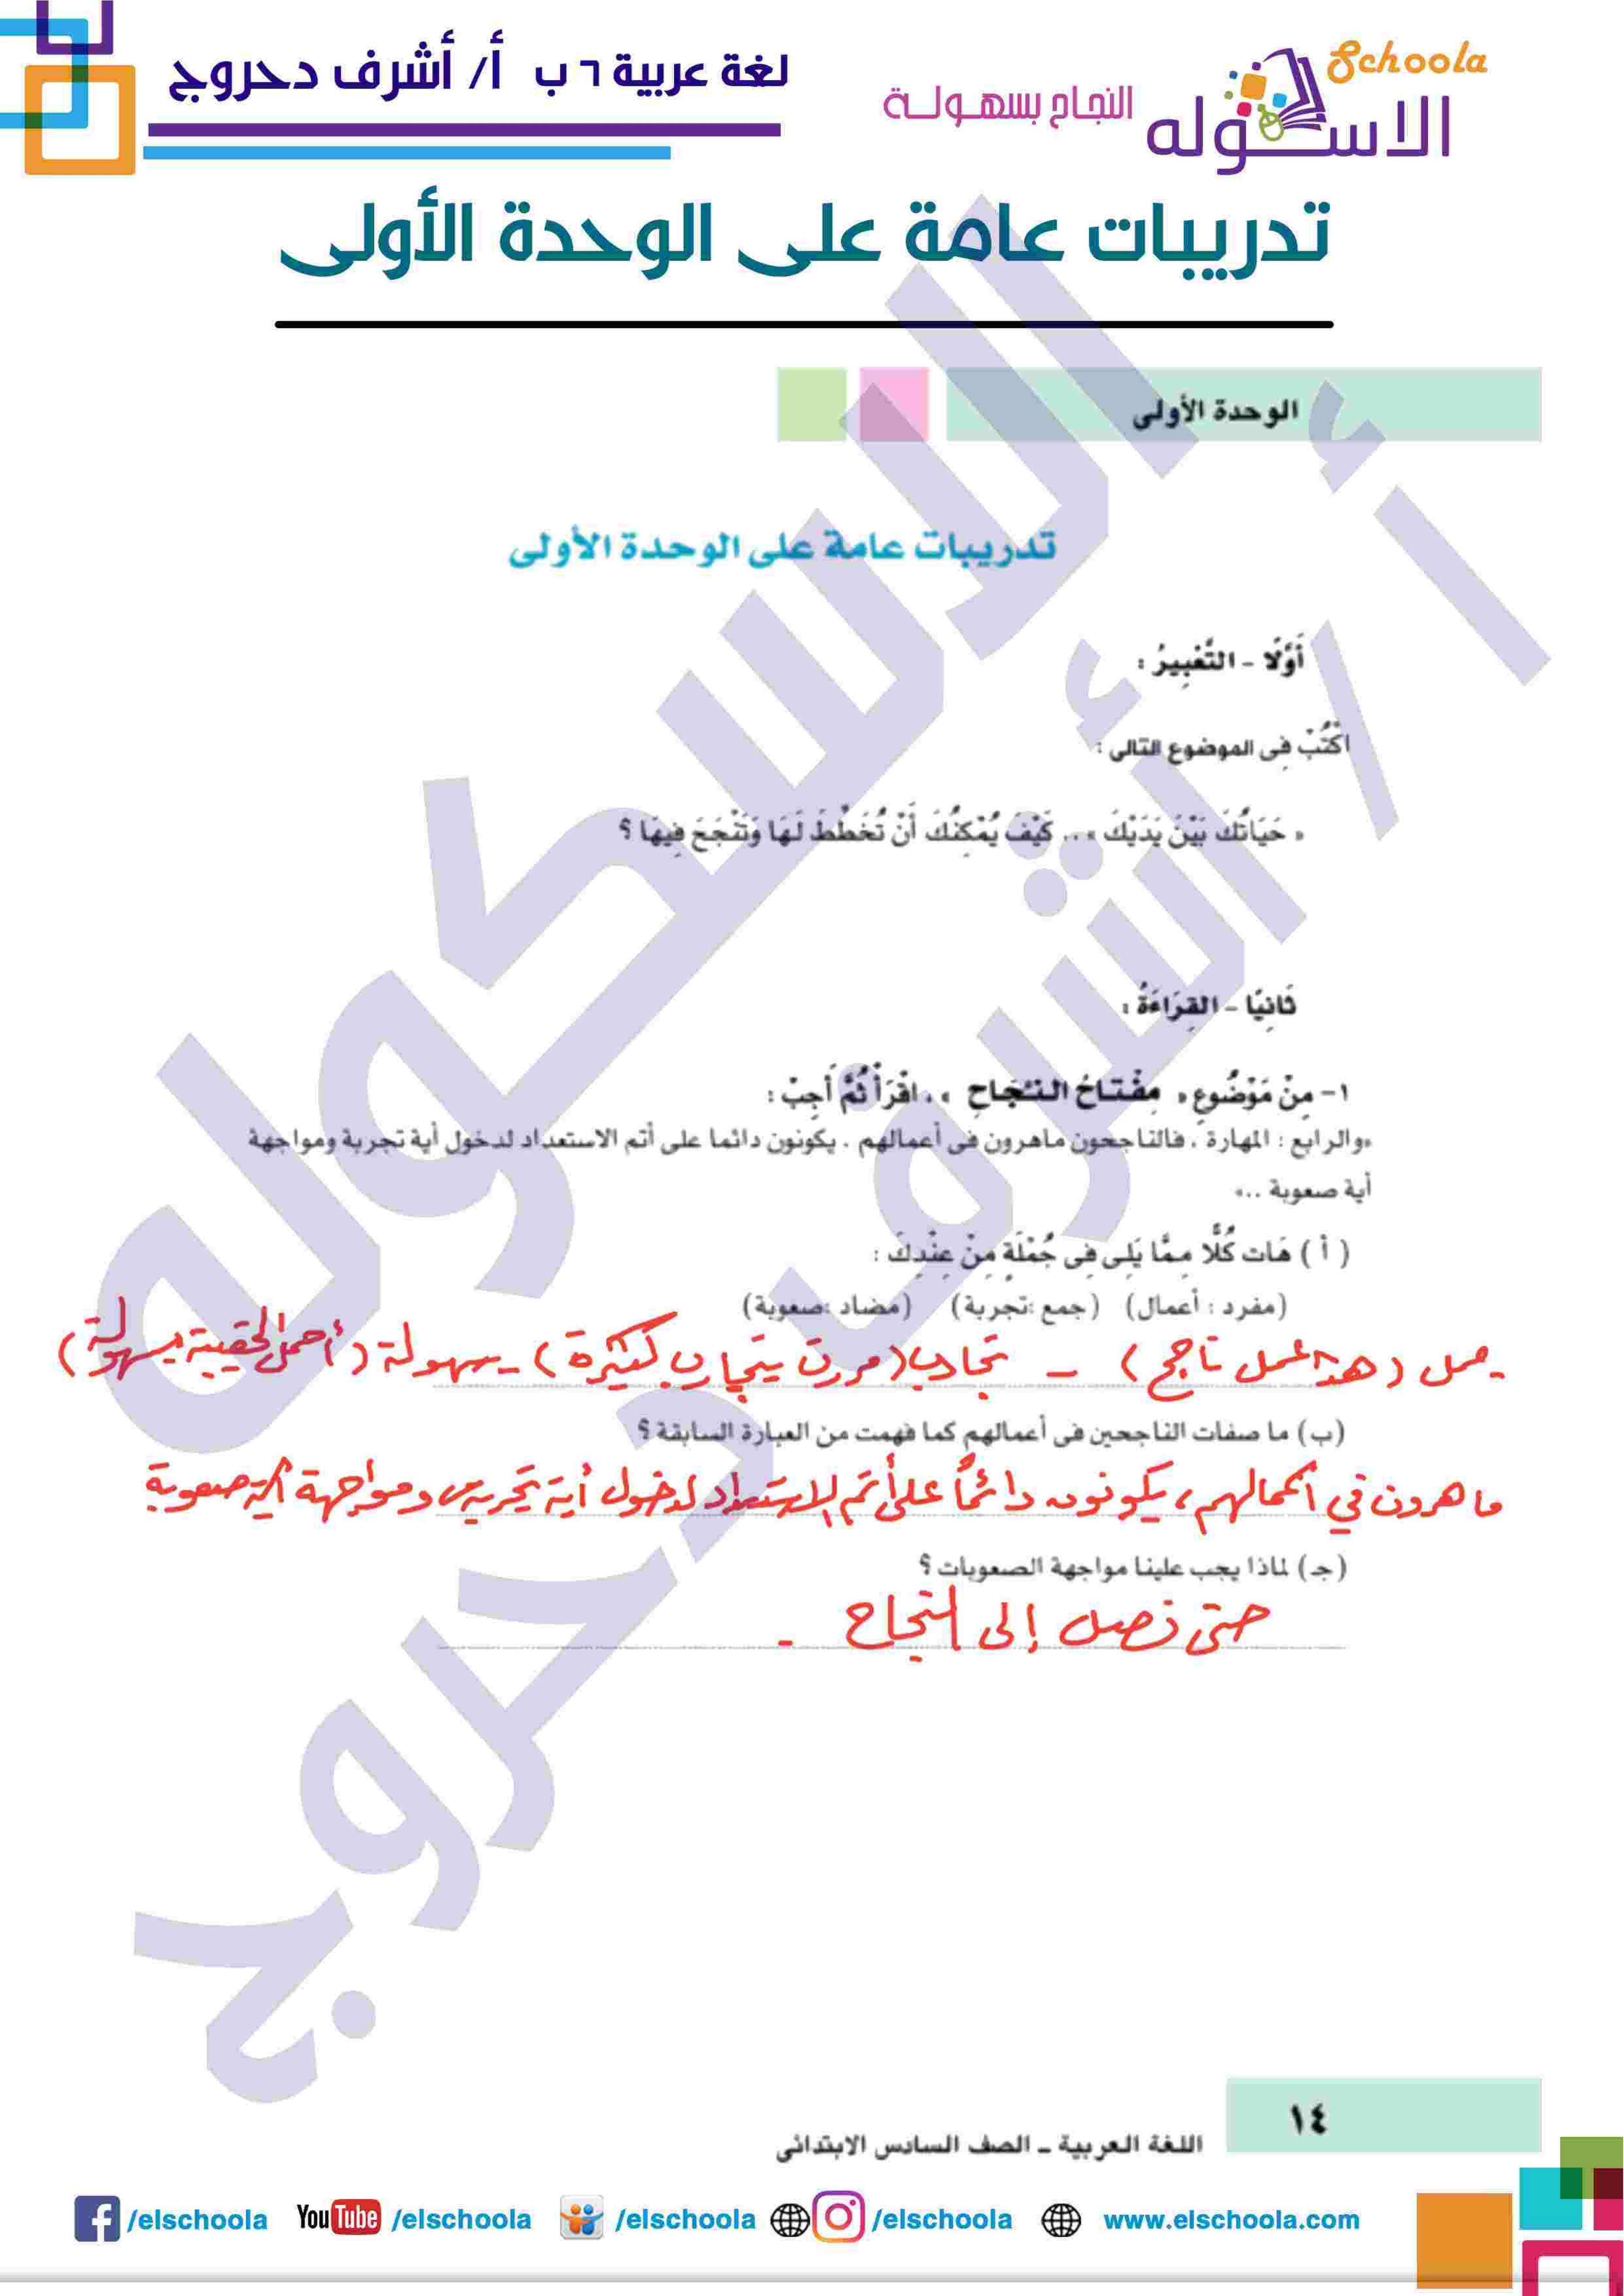 Schoola
الاسكوله
النجاح بسهولة
لغة عربية ٦ ب أ/ أشرف دحروج
تدريبات عامة على الوحدة الأولى
الوحدة الأولى
تدريبات عامة على الوحدة الأولى
أَوَّلًا - التَّعْبِيرُ :
اكْتُبْ فِى الموضوع التالى :
« حَيَاتُكَ بَيْنَ يَدَيْكَ » .. كَيْفَ يُمْكِنُكَ أَنْ تُخَطِّطَ لَهَا وَتَنْجَحَ فِيهَا ؟
ثَانِيًا - القِرَاءَةُ :
١- مِنْ مَوْضُوعِ « مِفْتَاحُ النَّجَاحِ » ، اقْرَأْ ثُمَّ أَجِبْ :
«والرابع : المهارة ، فالناجحون ماهرون فى أعمالهم ، يكونون دائما على أتم الاستعداد لدخول أية تجربة ومواجهة
أية صعوبة ..»
( أ ) هَات كُلًّا مِمَّا يَلِى فِى جُمْلَةٍ مِنْ عِنْدِكَ :
(مفرد : أعمال) (جمع :تجربة) (مضاد :صعوبة)
عمل (هذا عمل ناجح) - تجارب (مررت بتجارب كثيرة) - سهولة (أحمل الحقيبة بسهولة)
(ب) ما صفات الناجحين فى أعمالهم كما فهمت من العبارة السابقة ؟
ماهرون في أعمالهم، يكونون دائماً على أتم الاستعداد لدخول أية تجربة ومواجهة أية صعوبة
(جـ) لماذا يجب علينا مواجهة الصعوبات ؟
حتى نصل إلى النجاح -
الاسكوله
أ / أشرف دحروج
١٤
اللغة العربية - الصف السادس الابتدائى
/elschoola YouTube /elschoola /elschoola /elschoola www.elschoola.com